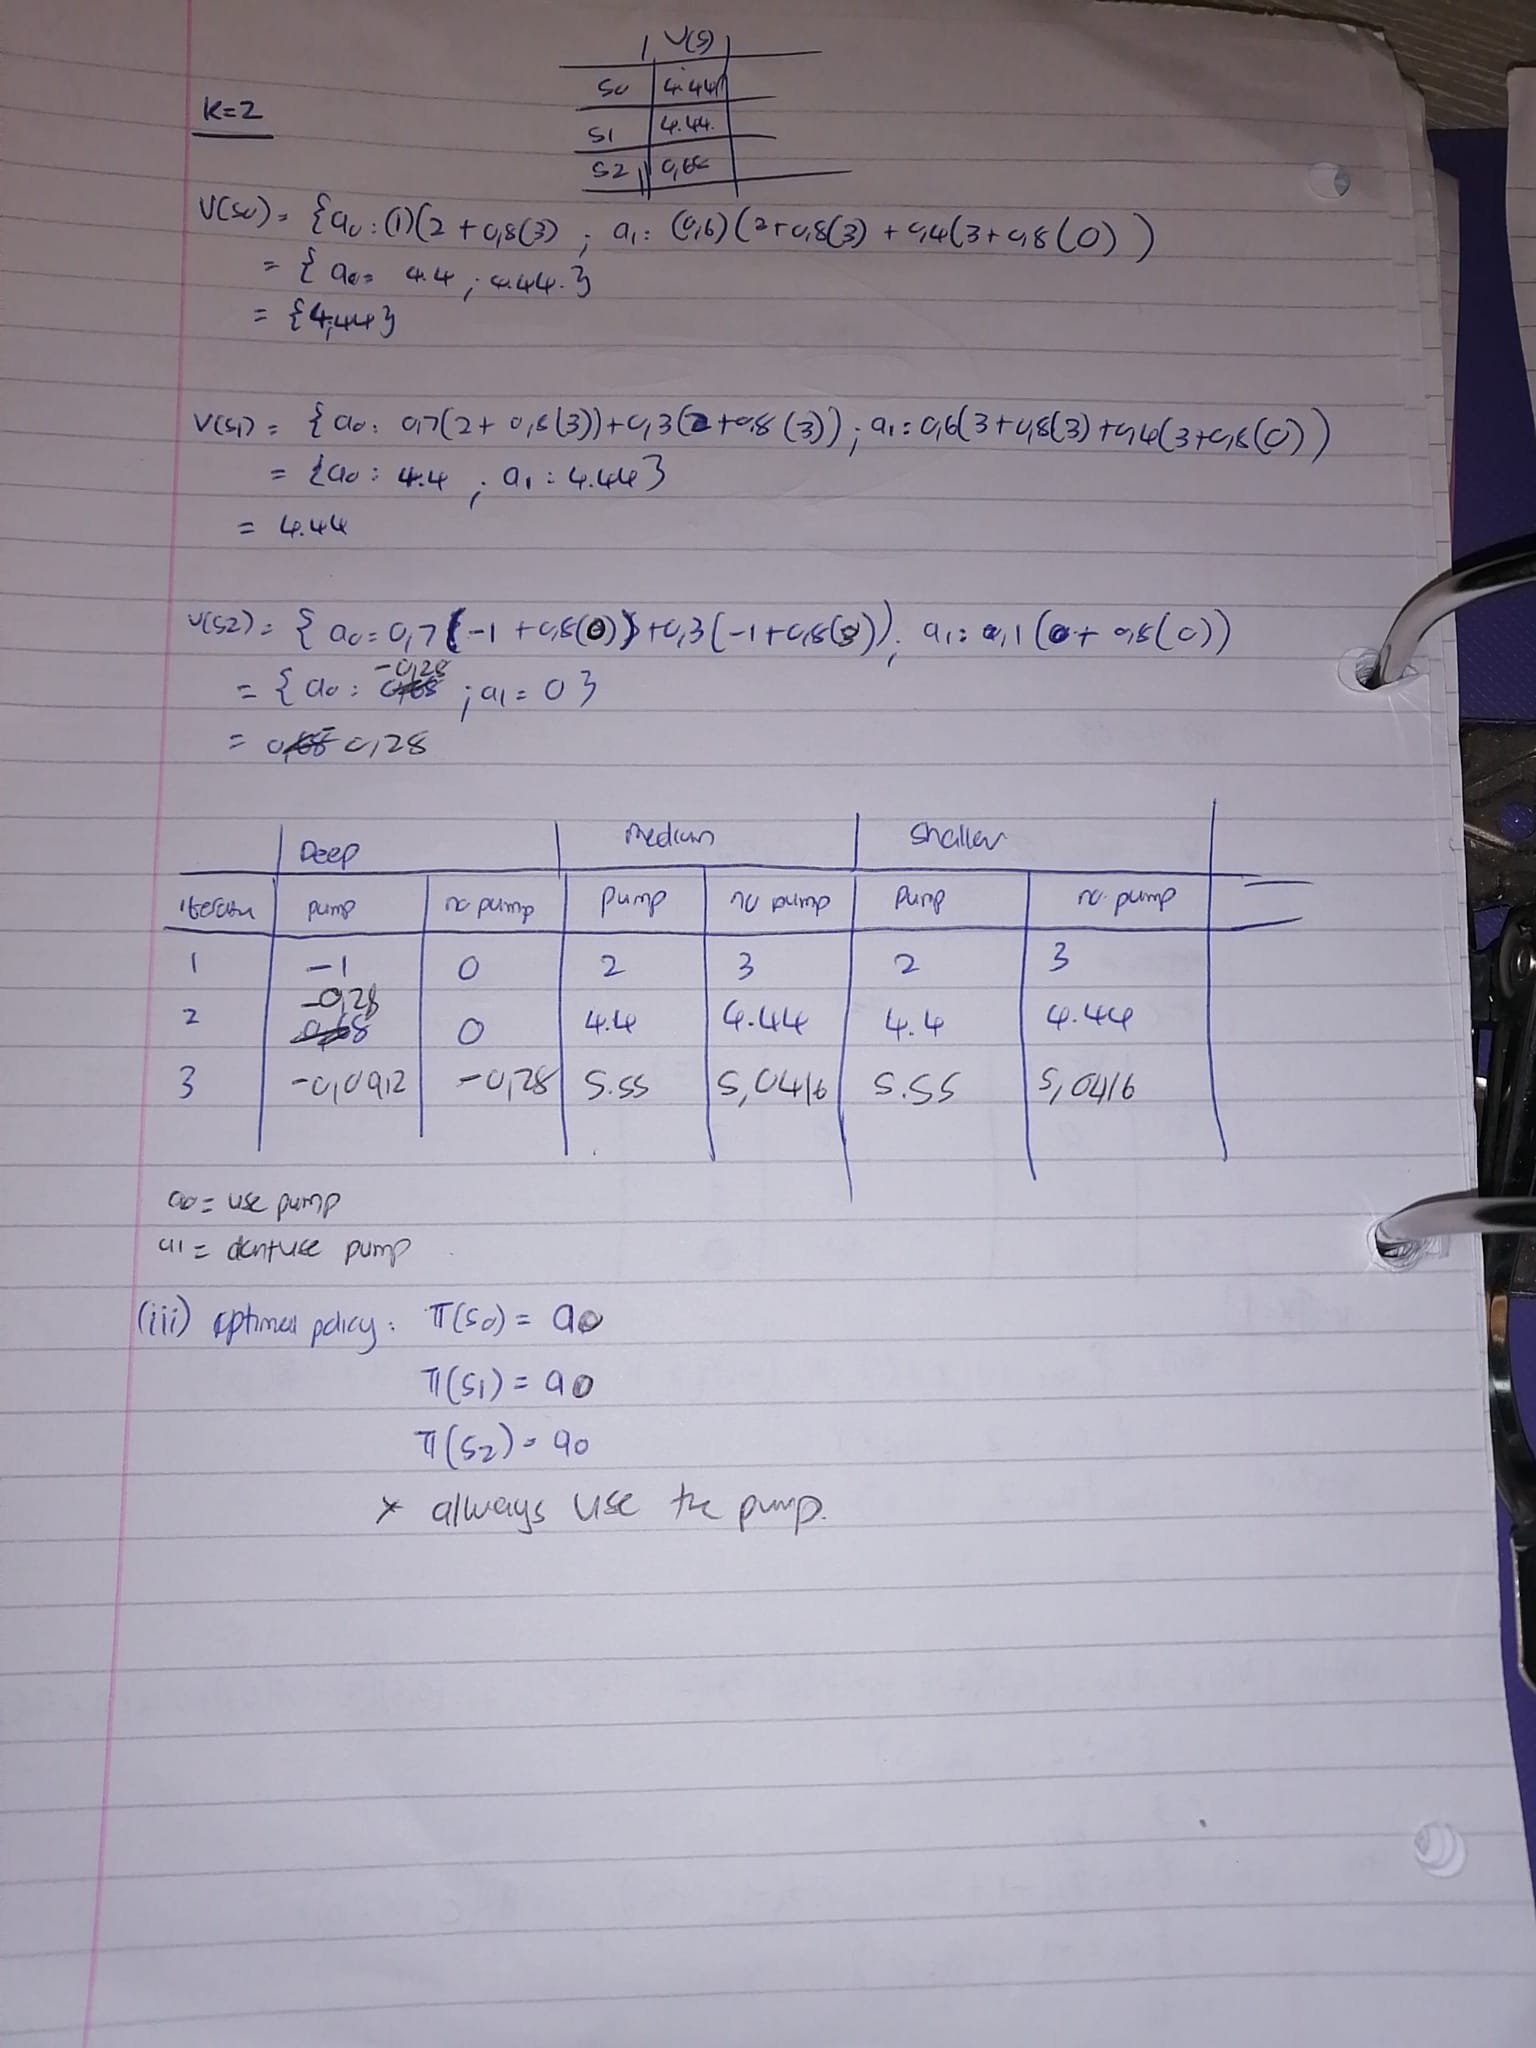 V(s)
S0 4.44
S1 4.44.
S2 0,68
K=2
V(S0) = {a0 : (1)(2 + 0,8(3) ; a1: (0,6)(2+0,8(3) + 0,4(3+0,8(0))
= {a0= 4.4 ; 4.44.}
= {4,44}
V(S1) = {a0: 0,7(2+ 0,8(3))+0,3(2+0,8(3)); a1: 0,6(3+0,8(3)+0,4(3+0,8(0))
= {a0: 4.4 ; a1: 4.44}
= 4.44
V(S2) = { a0= 0,7(-1 +0,8(0))+0,3(-1+0,8(3)); a1: 0,1(0+ 0,8(0))
= {a0: -0,28 ; a1= 0}
= 0,28
Deep medium Shallow
iteration pump no pump pump no pump pump no pump
1 -1 0 2 3 2 3
2 -0,28 0 4.4 4.44 4.4 4.44
3 -0,0912 -0,28 5.55 5,0416 5.55 5,0416
a0= use pump
a1= dont use pump
(iii) optimal policy: π(S0) = a0
π(S1) = a0
π(S2) = a0
* always use the pump.